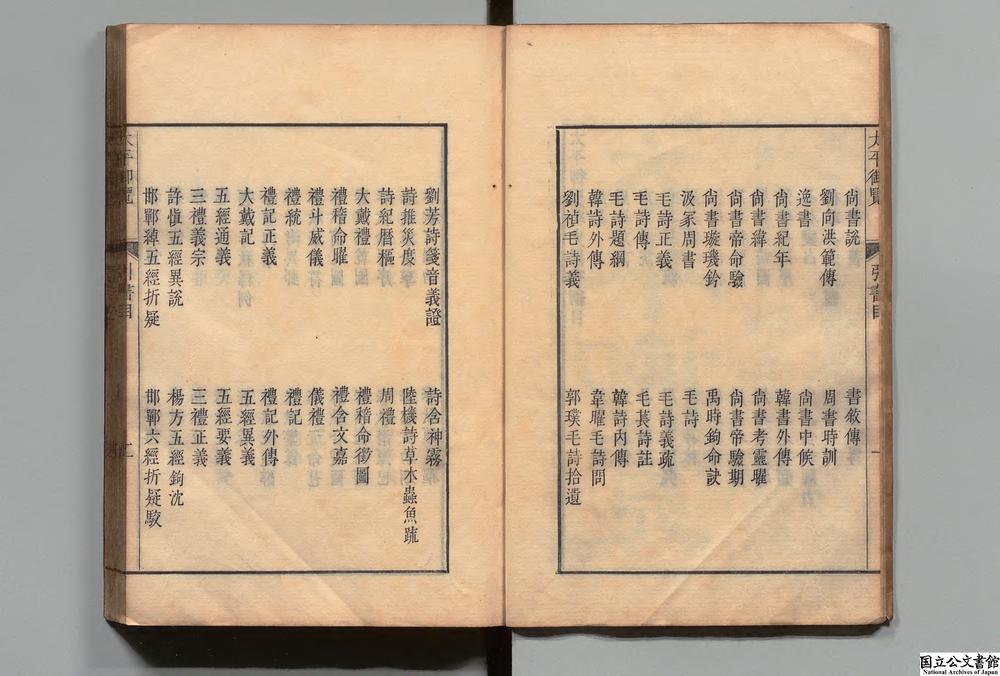 太平御覽
引書目
一
尚書說
書敘傳
劉向洪範傳
周書時訓
逸書
尚書中候
尚書紀年
韓書外傳
尚書緯
尚書考靈曜
尚書帝命驗
尚書帝驗期
尚書璇璣鈐
禹時鉤命訣
汲冢周書
毛詩
毛詩正義
毛詩義疏
毛詩傳
毛萇詩註
毛詩題綱
韓詩內傳
韓詩外傳
韋曜毛詩問
劉禎毛詩義
郭璞毛詩拾遺
劉芳詩箋音義證
詩含神霧
詩推災度
陸機詩草木蟲魚疏
詩紀曆樞
周禮
大戴禮
禮稽命徵圖
禮稽命曜
禮含文嘉
禮斗威儀
儀禮
禮統
禮記
禮記正義
禮記外傳
大戴記
五經異義
五經通義
五經要義
三禮義宗
三禮正義
許慎五經異說
楊方五經鉤沈
邯鄲綽五經折疑
邯鄲六經折疑駮
太平御覽
書目
国立公文書館
National Archives of Japan